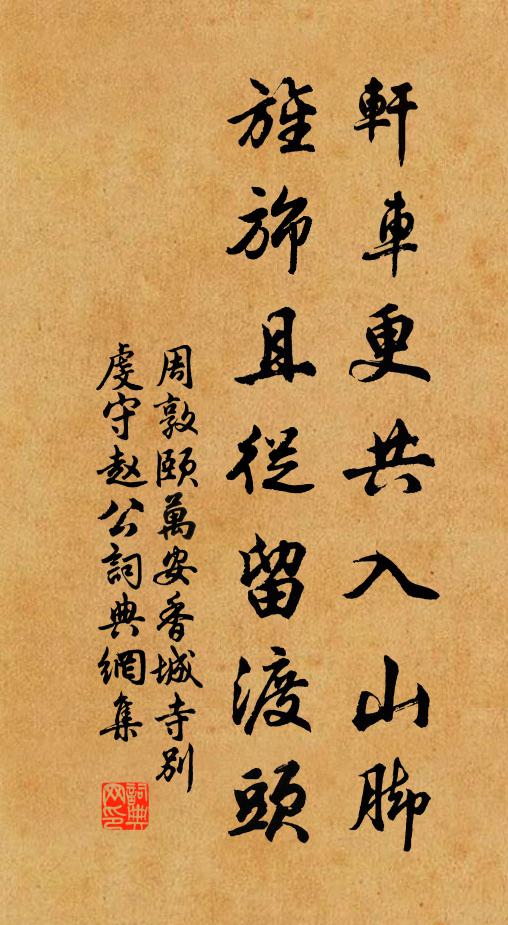 軒車更共入山腳
旌旆且從留渡頭
周敦頤萬安香城寺別
虔守趙公詞典網集
詞典网印